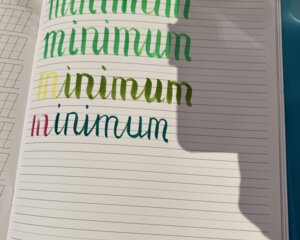 minimum
minimum
minimum
minimum